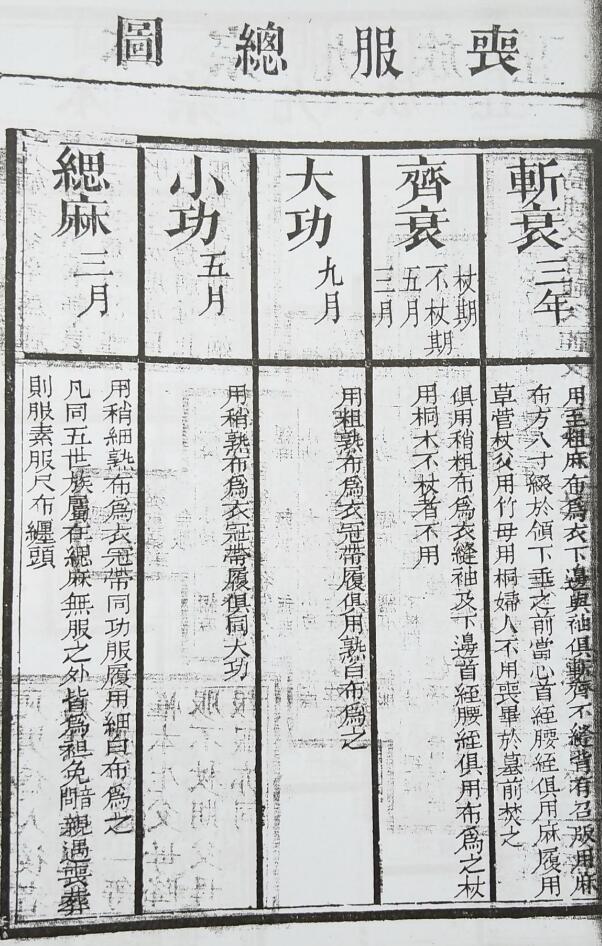 喪服總圖
斬衰三年
用至粗麻布為衣下邊與袖俱斬齊不縫背有召版用麻
布方八寸綴於領下垂之前當心首絰腰絰俱用麻履用
草菅杖父用竹母用桐婦人不用喪畢於墓前焚之
齊衰
杖期
不杖期
五月
三月
俱用稍粗布為衣縫袖及下邊首絰腰絰俱用布為之杖
用桐木不杖者不用
大功九月
用粗熟布為衣冠帶履俱用熟白布為之
小功五月
用稍熟布為衣冠帶履俱同大功
緦麻三月
用稍細熟布為衣冠帶同功服履用細白布為之
凡同五世族屬在緦麻無服之外皆為袒免問親遇喪葬
則服素服尺布纏頭